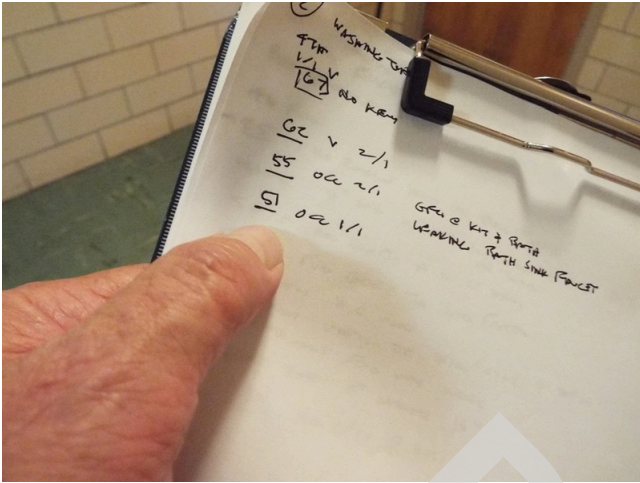 C
WASHING TON
4TH
1/1 V
67 NO KEYS
62 V 2/1
55 OCC 2/1
51 OCC 1/1
GFCI @ KIT & BATH
LEAKING BATH SINK FAUCET